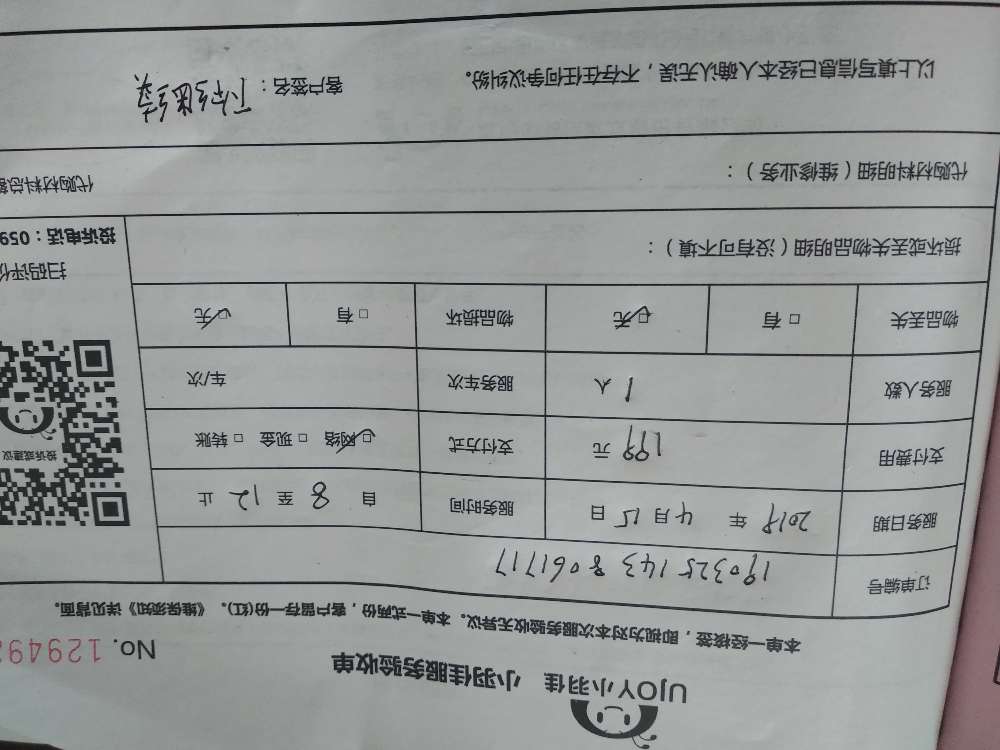 UJOY小羽佳 小羽佳服务验收单
No. 12949
本单一经核签，即视为对本次服务验收无异议。本单一式两份，客户留存一份(红)。《维保须知》详见背面。
订单编号 190325143 8061717
服务日期 2019 年 4 月 15 日 服务时间 自 8 至 12 止
支付费用 199 元 支付方式 ☑网络 □现金 □转账
服务人数 1 人 服务车次 车/次
物品丢失 □有 ☑无 物品损坏 □有 ☑无
投诉或建议
扫码评价
投诉电话：059
损坏或丢失物品明细（没有可不填）：
代购材料明细（维修业务）： 代购材料总
以上填写信息已经本人确认无误，不存在任何争议纠纷。 客户签名：